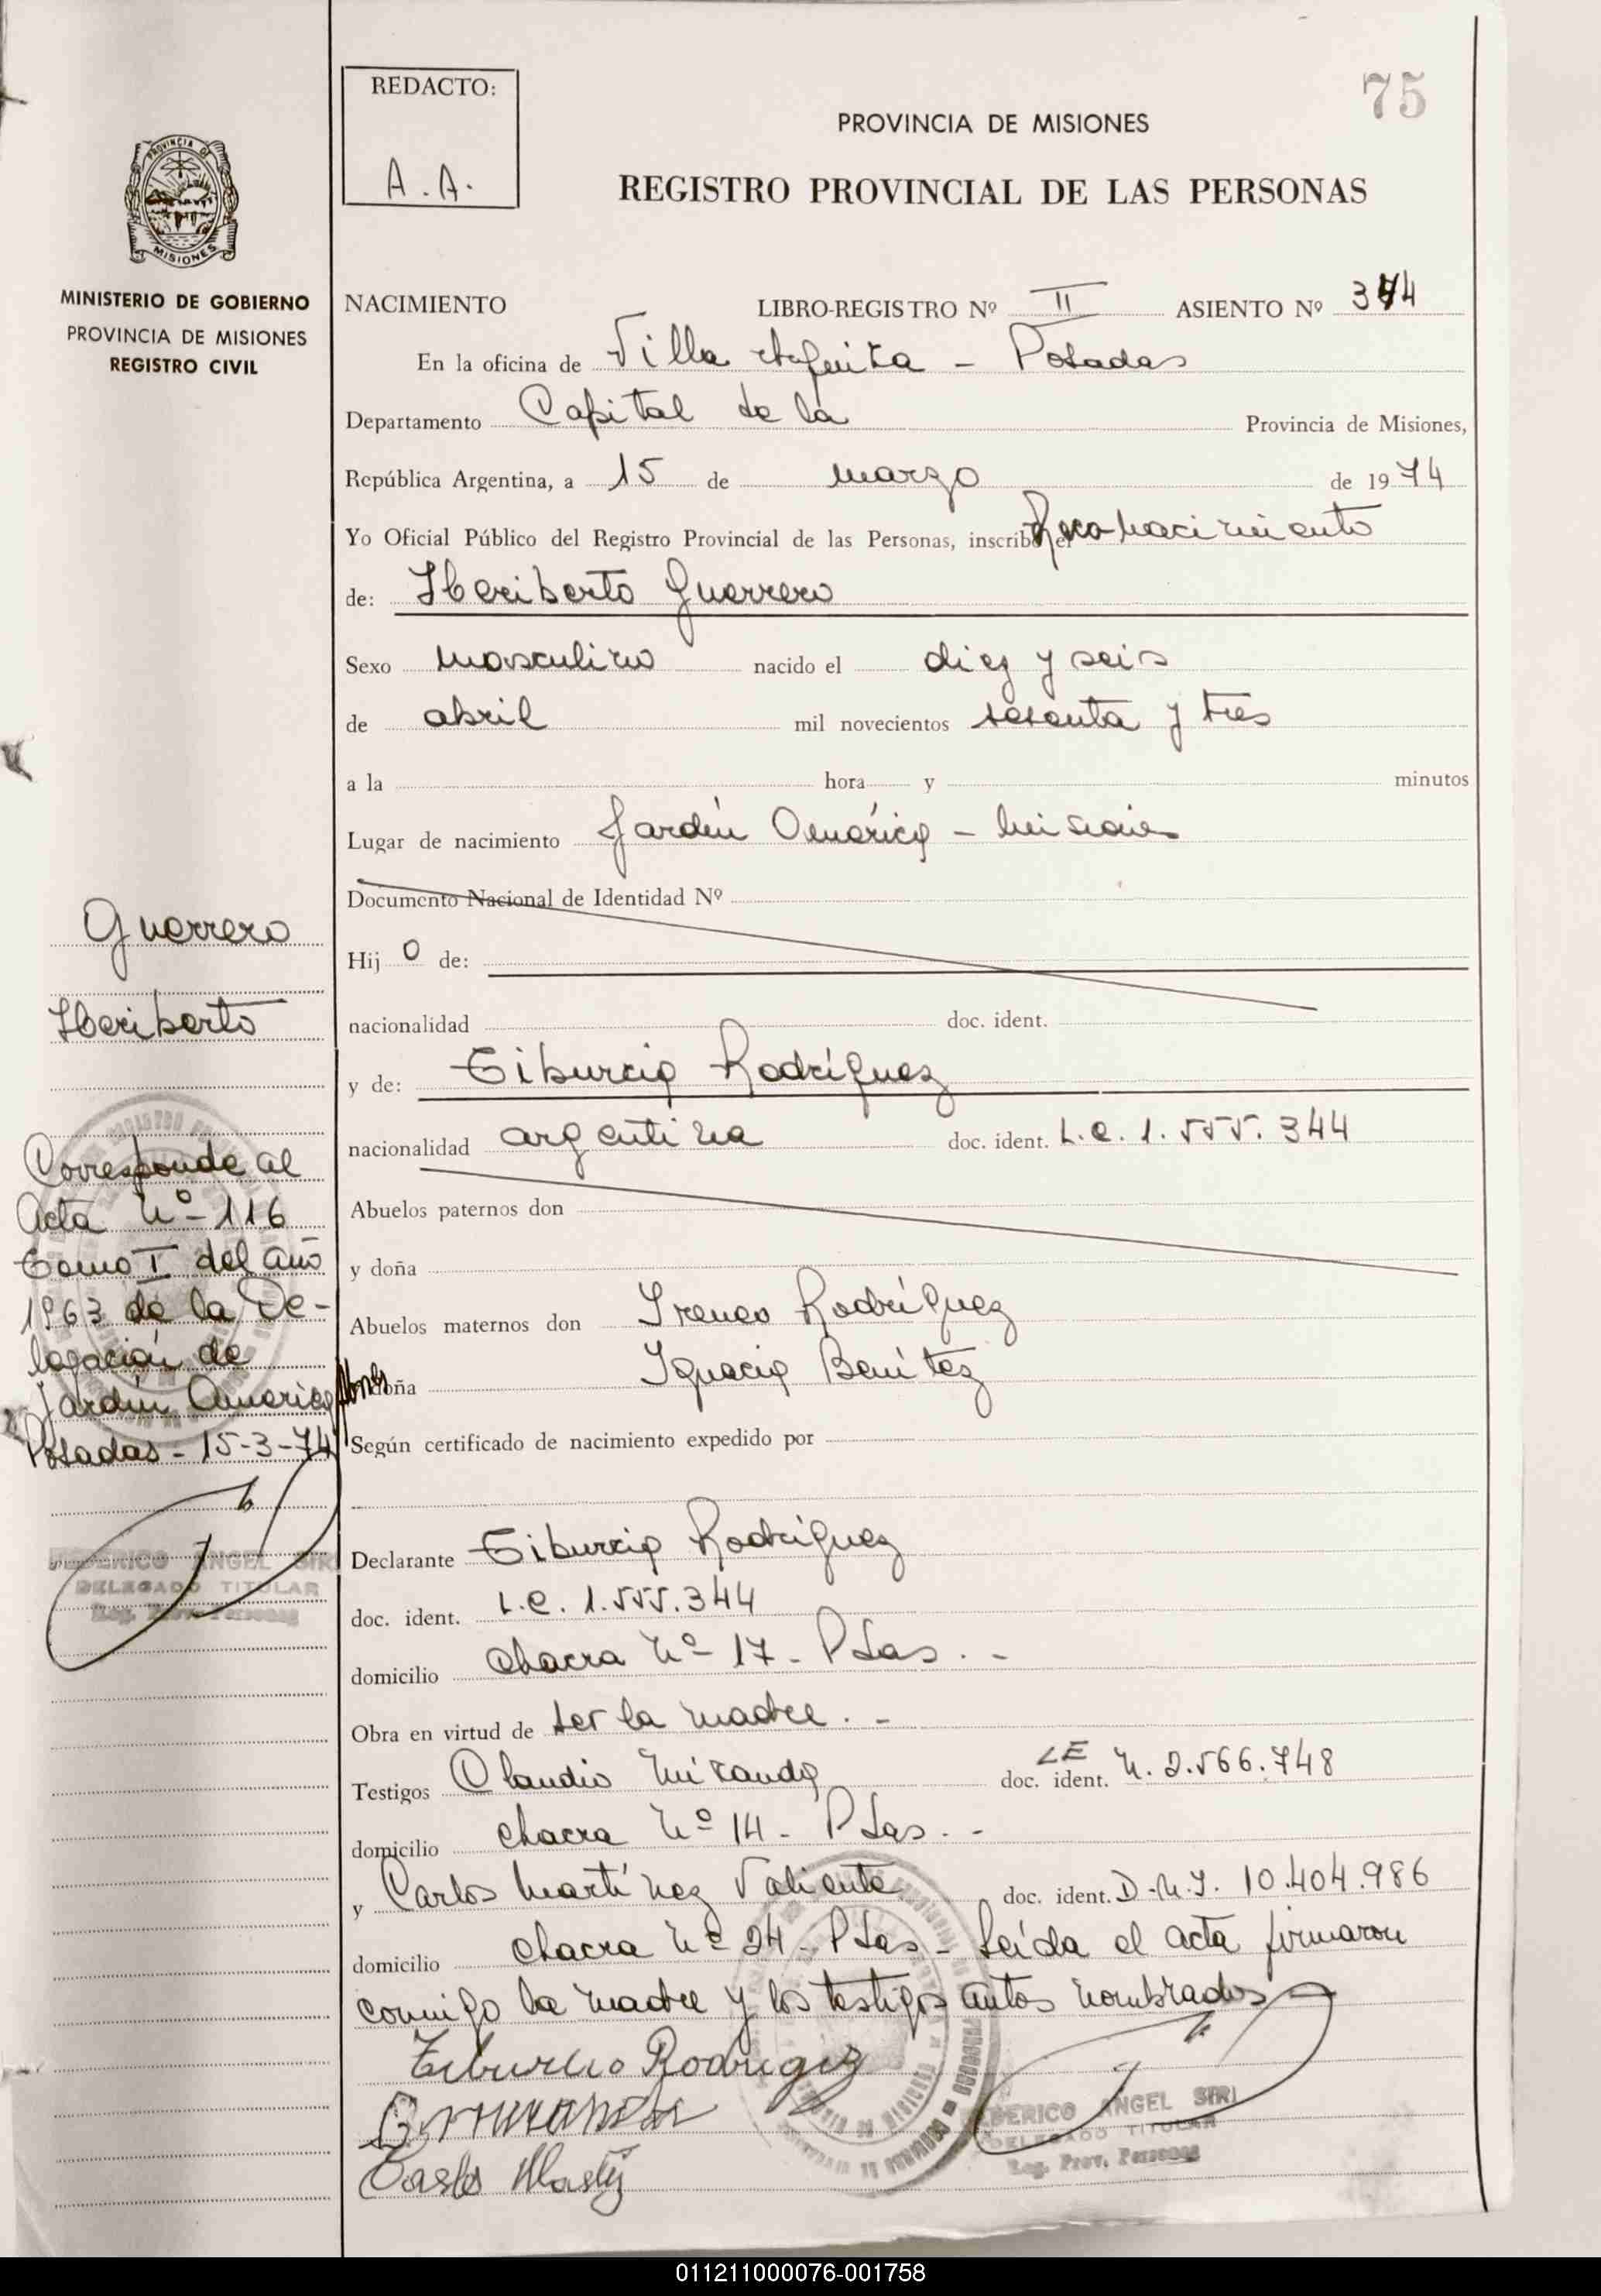 75
REDACTO:
A.A.
PROVINCIA DE MISIONES
REGISTRO PROVINCIAL DE LAS PERSONAS
MISIONES
MINISTERIO DE GOBIERNO
PROVINCIA DE MISIONES
REGISTRO CIVIL
NACIMIENTO LIBRO-REGISTRO Nº II ASIENTO Nº
En la oficina de Villa Posadas
Departamento Capital de la Provincia de Misiones,
República Argentina, a 15 de marzo de 1974
Yo Oficial Público del Registro Provincial de las Personas, inscribo el
de: Heriberto Guerrero
Sexo masculino nacido el diez y seis
de abril mil novecientos sesenta y tres
a la hora y minutos
Lugar de nacimiento Jardín América - Misiones
Documento Nacional de Identidad Nº
Hij o de:
nacionalidad doc. ident.
y de: Tiburcia Rodríguez
nacionalidad argentina doc. ident. L.C. 1.555.344
Abuelos paternos don
y doña
Abuelos maternos don Ireneo Rodríguez
doña Ignacia Benítez
Según certificado de nacimiento expedido por
Declarante Tiburcia Rodríguez
doc. ident. L.C. 1.555.344
domicilio chacra Nº 17 - Pdas. -
Obra en virtud de ser la madre. -
Testigos Claudio Miranda doc. ident. LE N. 2.566.748
domicilio chacra Nº 14 - Pdas. -
y Carlos Martínez Valiente doc. ident. D.N.I. 10.404.986
domicilio chacra Nº 24 - Pdas - Leída el acta firmaron
conmigo la madre y los testigos antes nombrados
Tiburcio Rodrigez
Carlos
FEDERICO ANGEL SIRI
DELEGADO TITULAR
Reg. Prov. Personas
Guerrero
Heriberto
Corresponde al
Acta Nº 116
Tomo I del año
1963 de la De-
legación de
Jardín America
Posadas - 15-3-74
FEDERICO ANGEL SIRI
DELEGADO TITULAR
Reg. Prov. Personas
011211000076-001758